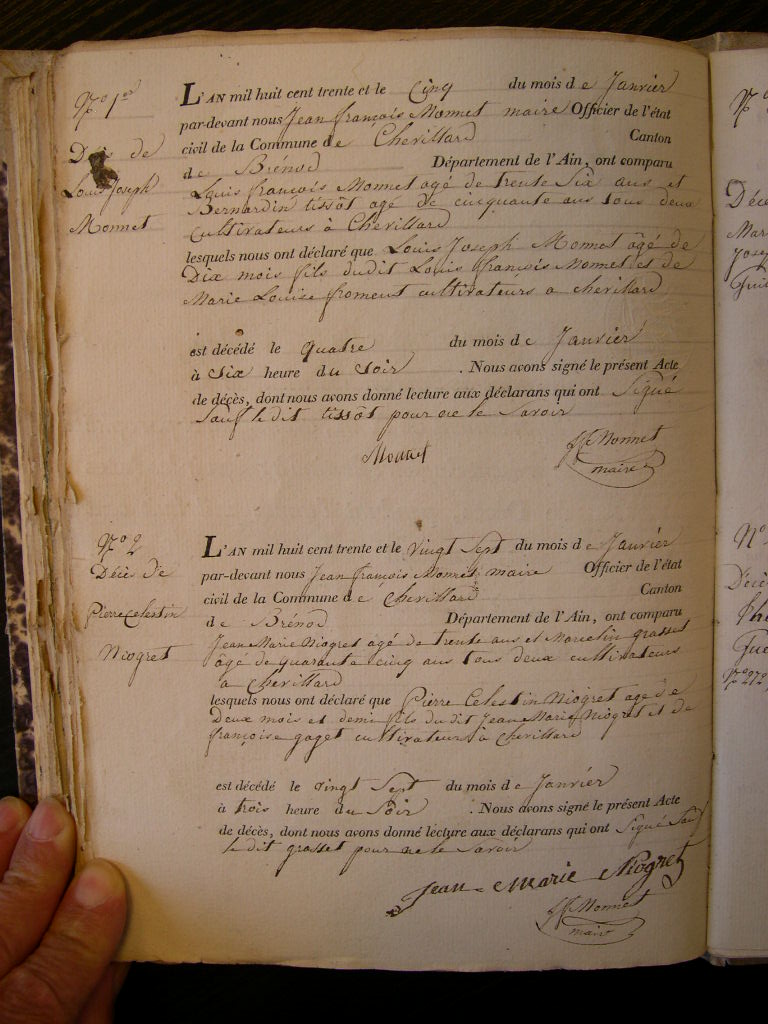 N.º 1er
Décès de
Louis Joseph
Monnet
L'AN mil huit cent trente et le Cinq du mois de Janvier
par-devant nous Jean françois Monnet maire Officier de l'état
civil de la Commune de Chevillard Canton
de Brénod Département de l'Ain, ont comparu
Louis françois Monnet agé de trente Six ans et
Bernardin tissot agé de cinquante ans tous deux
cultivateurs à Chevillard
lesquels nous ont déclaré que Louis Joseph Monnet âgé de
Dix mois fils dudit Louis françois Monnet et de
Marie Louise froment cultivateurs a chevillard
est décédé le quatre du mois de Janvier
à Six heure du Soir . Nous avons signé le présent Acte
de décès, dont nous avons donné lecture aux déclarans qui ont Signé
Sauf le dit tissot pour ne le Savoir
Monnet
JF Monnet
maire
N.º 2
Décè de
Pierre Celestin
Niogret
L'AN mil huit cent trente et le vingt Sept du mois de Janvier
par-devant nous Jean françois Monnet maire Officier de l'état
civil de la Commune de Chevillard Canton
de Brénod Département de l'Ain, ont comparu
Jean Marie Niogret agé de trente ans et Marcelin grasset
âgé de quarante cinq ans tous deux cultivateurs
a Chevillard
lesquels nous ont déclaré que Pierre Celestin Niogret age de
Deux mois et demi fils du dit Jean Marie Niogret et de
françoise gaget cultivateurs à Chevillard
est décédé le vingt Sept du mois de Janvier
à trois heure du Soir . Nous avons signé le présent Acte
de décès, dont nous avons donné lecture aux déclarans qui ont Signé Sauf
le dit grasset pour ne le Savoir
Jean Marie Niogret
JF Monnet
maire
N.º
Déce
Mar
Jose
Gui
Nº
Décè
Gue